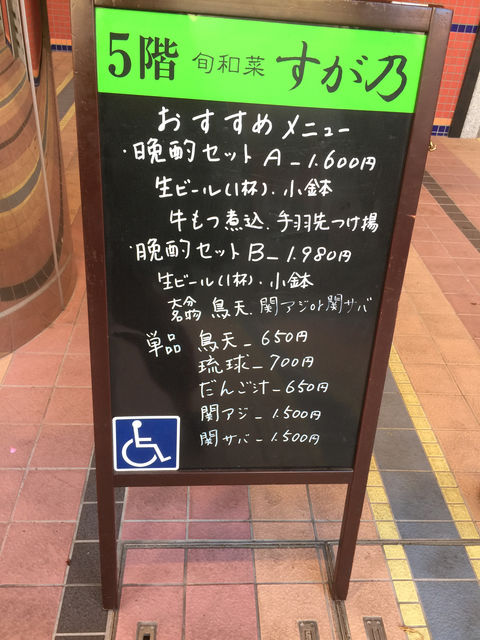 5階 旬和菜 すが乃
おすすめメニュー
・晩酌セットA-1.600円
生ビール(1杯)．小鉢
牛もつ煮込．手羽先つけ揚
・晩酌セットB-1.980円
生ビール(1杯)．小鉢
大分名物 鳥天．関アジor関サバ
単品 鳥天-650円
琉球-700円
だんご汁-650円
関アジ-1.500円
関サバ-1.500円